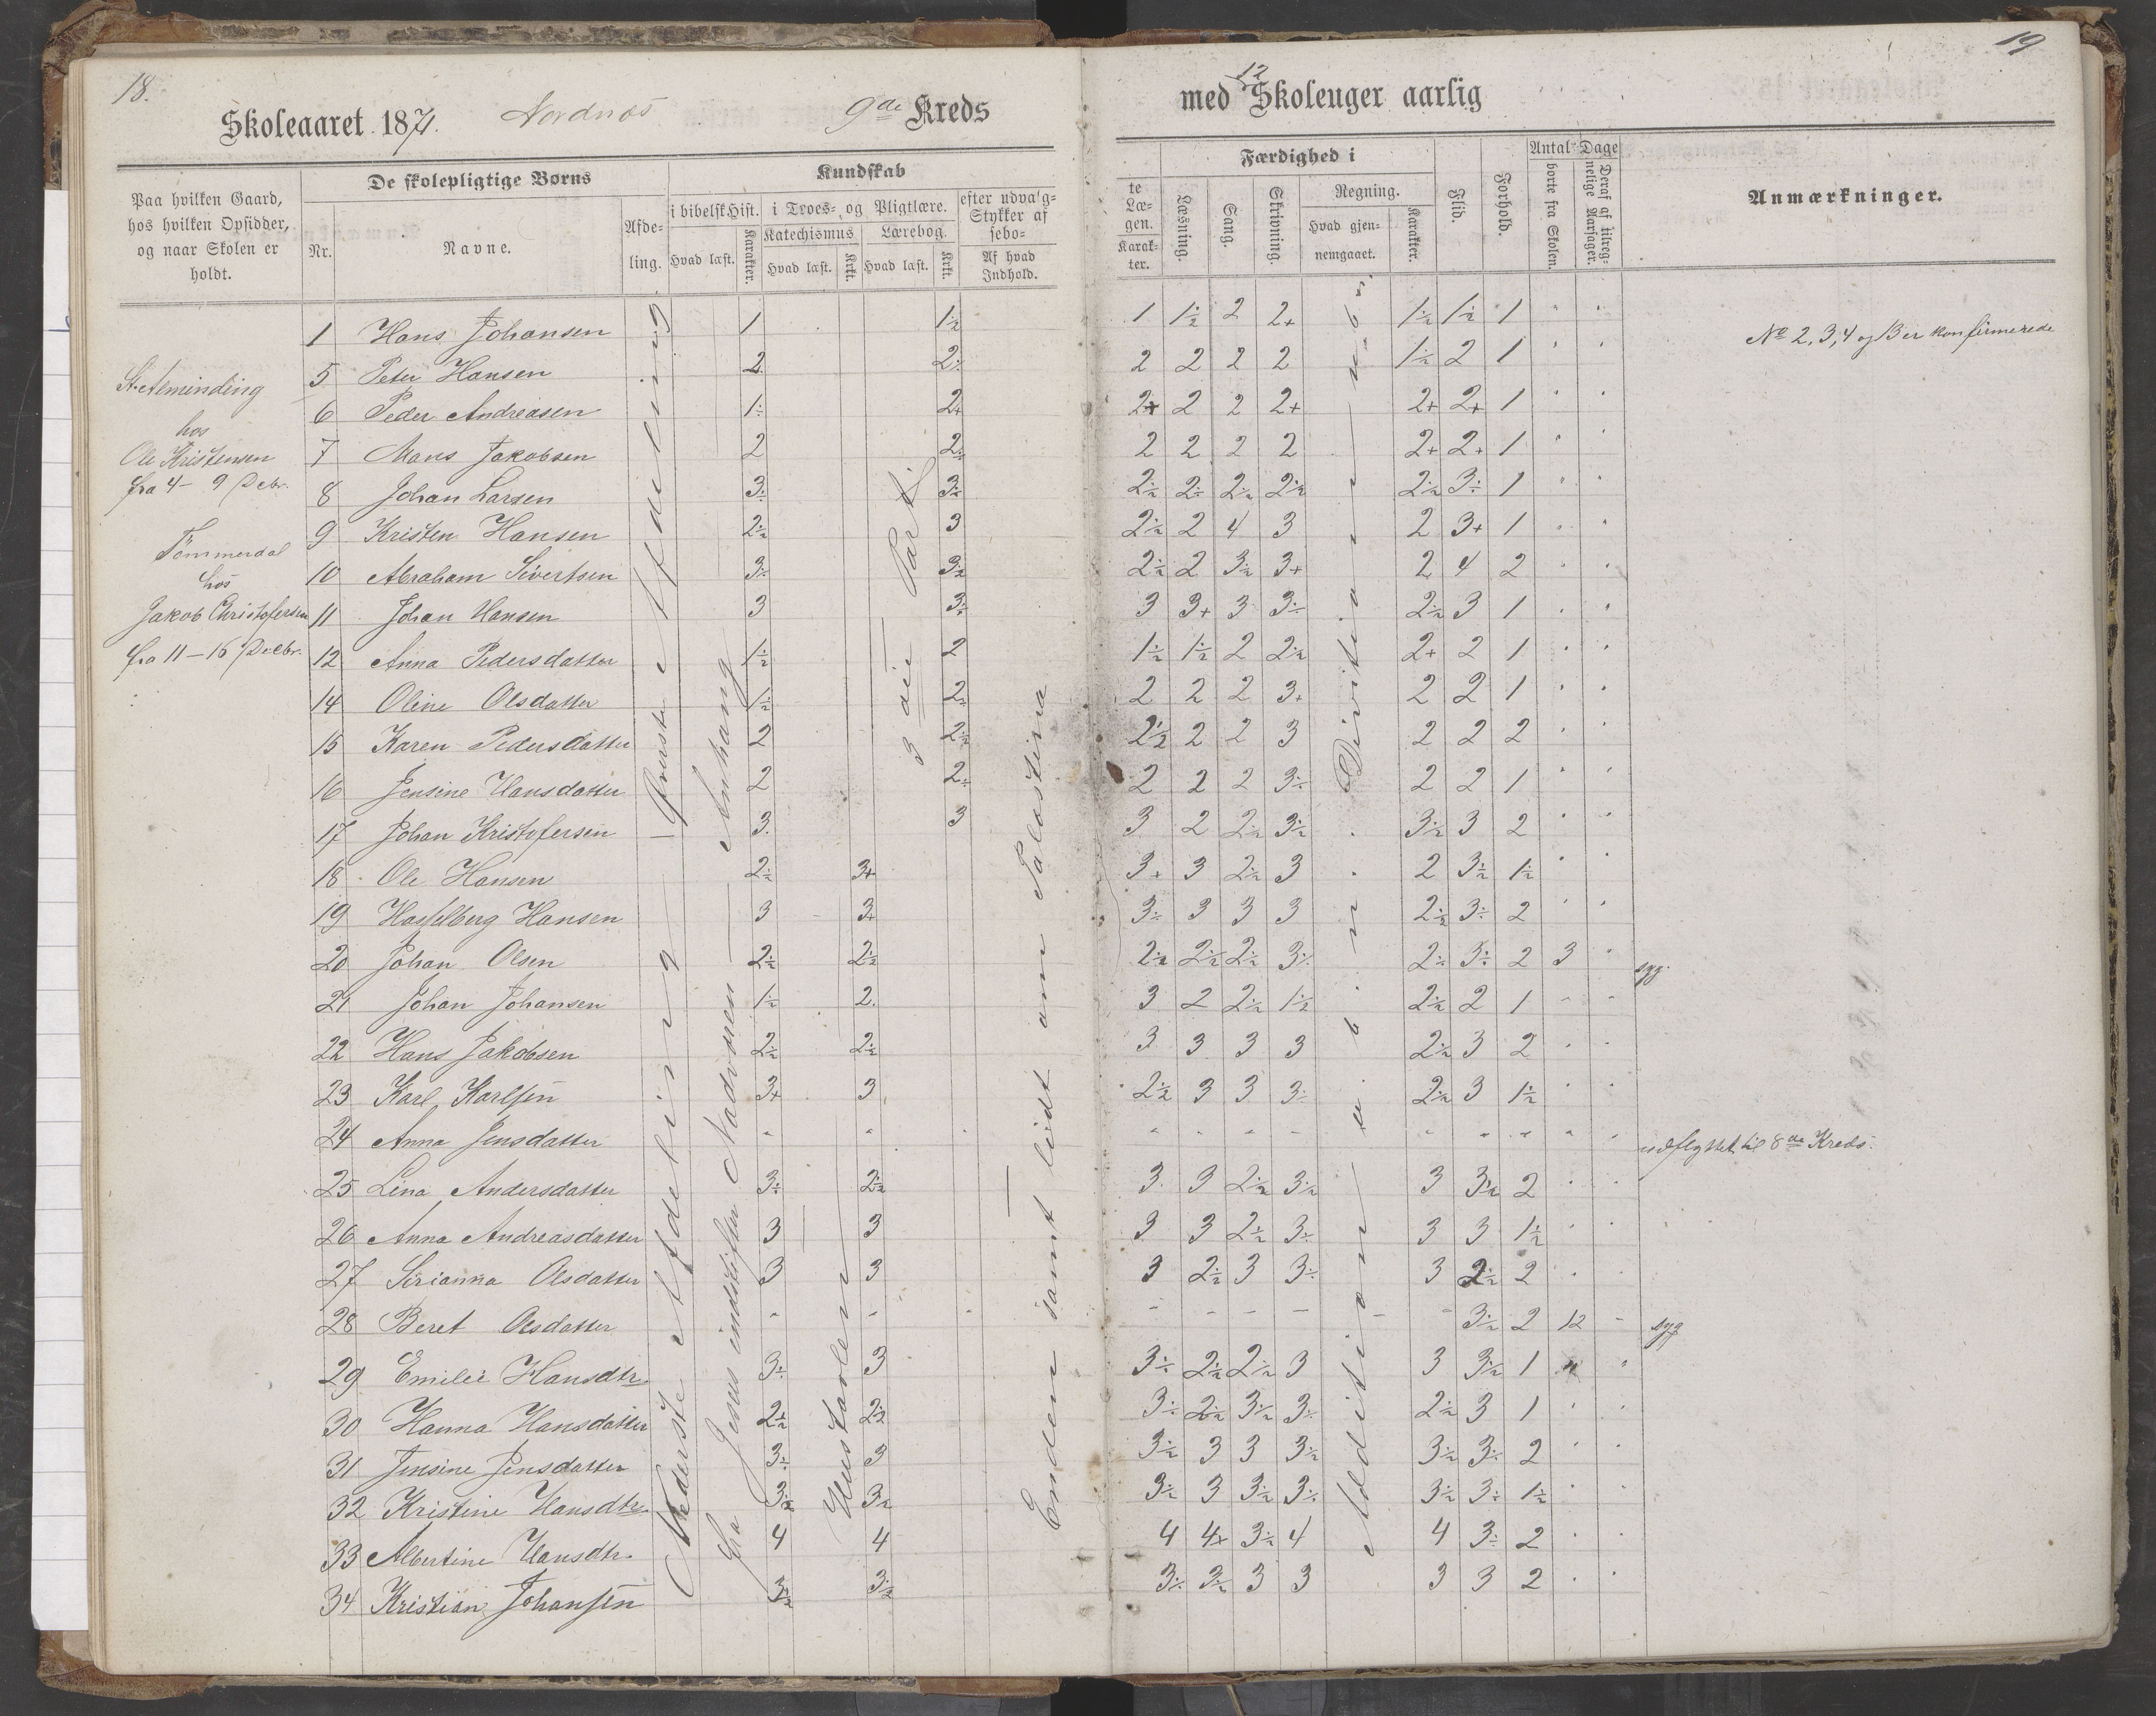 18.
Skoleaaret 1871.
Nordnæs
9de Kreds
Paa hvilken Gaard, hos hvilken Opsidder, og naar Skolen er holdt.
De skolepligtige Børns
Nr.
Navne.
Afdeling.
Kundskab
i bibelsk Hist.
Hvad læst.
Karakter.
i Troes- og Pligtlære.
Katechismus
Hvad læst.
Krkt.
Lærebog.
Hvad læst.
Krkt.
efter udvalg-
Stykker af
sebo-
Af hvad Indhold.
St. Alminding
hos
Ole Kristensen
fra 4 - 9 Decbr.
Tömmerdal
hos
Jakob Christofersen
fra 11 - 16 Decbr.
Øverste Afdeling
Nederste Afdeling
Fra Jesus indstifter Nadveren
Anhang
3die Part.
Enden samt lidt om Palæstina
1 Hans Johansen 1 1÷2
5 Peter Hansen 2 2÷
6 Peder Andreasen 1÷ 2+
7 Mons Jakobsen 2 2÷
8 Johan Larsen 3÷ 3÷2
9 Kristen Hansen 2÷2 3
10 Abraham Sivertsen 3÷ 3÷2
11 Johan Hansen 3 3÷
12 Anna Pedersdatter 1÷2 2
14 Oline Olsdatter 1÷2 2÷
15 Karen Pedersdatter 2 2÷2
16 Jensine Hansdatter 2 2÷
17 Johan Kristofersen 3 3
18 Ole Hansen 2÷2 3+
19 Hasselberg Hansen 3 3+
20 Johan Olsen 2÷2 2÷2
21 Johan Johansen 1÷2 2
22 Hans Jakobsen 2÷2 2÷2
23 Karl Karlsen 3+ 3
24 Anna Jensdatter " "
25 Lina Andersdatter 3÷ 2÷2
26 Anna Andreasdatter 3 3
27 Sirianna Olsdatter 3 3
28 Beret Olsdatter - -
29 Emilie Hansdtr. 3÷ 3
30 Hanna Hansdatter 2÷2 2÷2
31 Jensine Jensdatter 3÷ 3
32 Kristine Hansdtr. 3÷2 3÷2
33 Albertine Hansdtr. 4 4
34 Kristian Johansen 3÷2 3÷2
19
med 12 Skoleuger aarlig
te Læ-
gen.
Karakter.
Færdighed i
Læsning.
Sang.
Skrivning.
Regning.
Hvad gjennemgaaet.
Karakter.
Flid.
Forhold.
Antal Dage
borte fra Skolen.
Deraf af tilregnelige Aarsager.
Anmærkninger.
Division
Addition
1 1÷2 2 2+ 1÷2 1÷2 1 " "
No 2, 3, 4 og 13 er konfirmerede
2 2 2 2 1÷2 2 1 " "
2+ 2 2 2+ 2+ 2+ 1 " "
2 2 2 2 2+ 2+ 1 " "
2÷2 2÷ 2÷2 2÷2 2÷2 3÷ 1 " "
2÷2 2 4 3 2 3+ 1 " "
2÷2 2 3÷2 3+ 2 4 2 " "
3 3+ 3 3÷ 2÷2 3 1 " "
1÷2 1÷2 2 2÷2 2+ 2 1 " "
2 2 2 3+ 2 2 1 " "
2÷2 2 2 3 2 2 2 "
2 2 2 3÷ 2 2 1 " "
3 2 2÷2 3÷2 3÷2 3 2 " "
3+ 3 2÷2 3 2 3÷2 1÷2 " "
3÷ 3 3 3 2÷2 3÷ 2 " "
2÷2 2÷2 2÷2 3÷ 2÷ 3÷ 2 3 " syg.
3 2 2÷2 1÷2 2÷2 2 1 " "
3 3 3 3 2÷2 3 2 " "
2÷2 3 3 3÷ 2÷2 3 1÷2 " "
" " " " " " " " " udflyttet til 8de Kreds.
3 3 2÷2 3÷2 3 3÷2 2 " "
3 3 2÷2 3÷ 3 3 1÷2 " "
3 2÷2 3 3÷ 3 2÷2 2 " "
- - - - - - 3÷2 2 12 - syg
3÷ 2÷2 2÷2 3 3 3÷2 1 " "
3÷ 2÷2 3÷2 3÷ 2÷2 3 1 " "
3÷2 3 3 3÷2 3÷2 3÷ 2 " "
3÷2 3 3÷2 3÷ 3÷2 3÷ 1÷2 " "
4 4+ 3÷2 4 4 3÷ 2 " "
3÷ 3÷2 3 3 3 3 2 " "